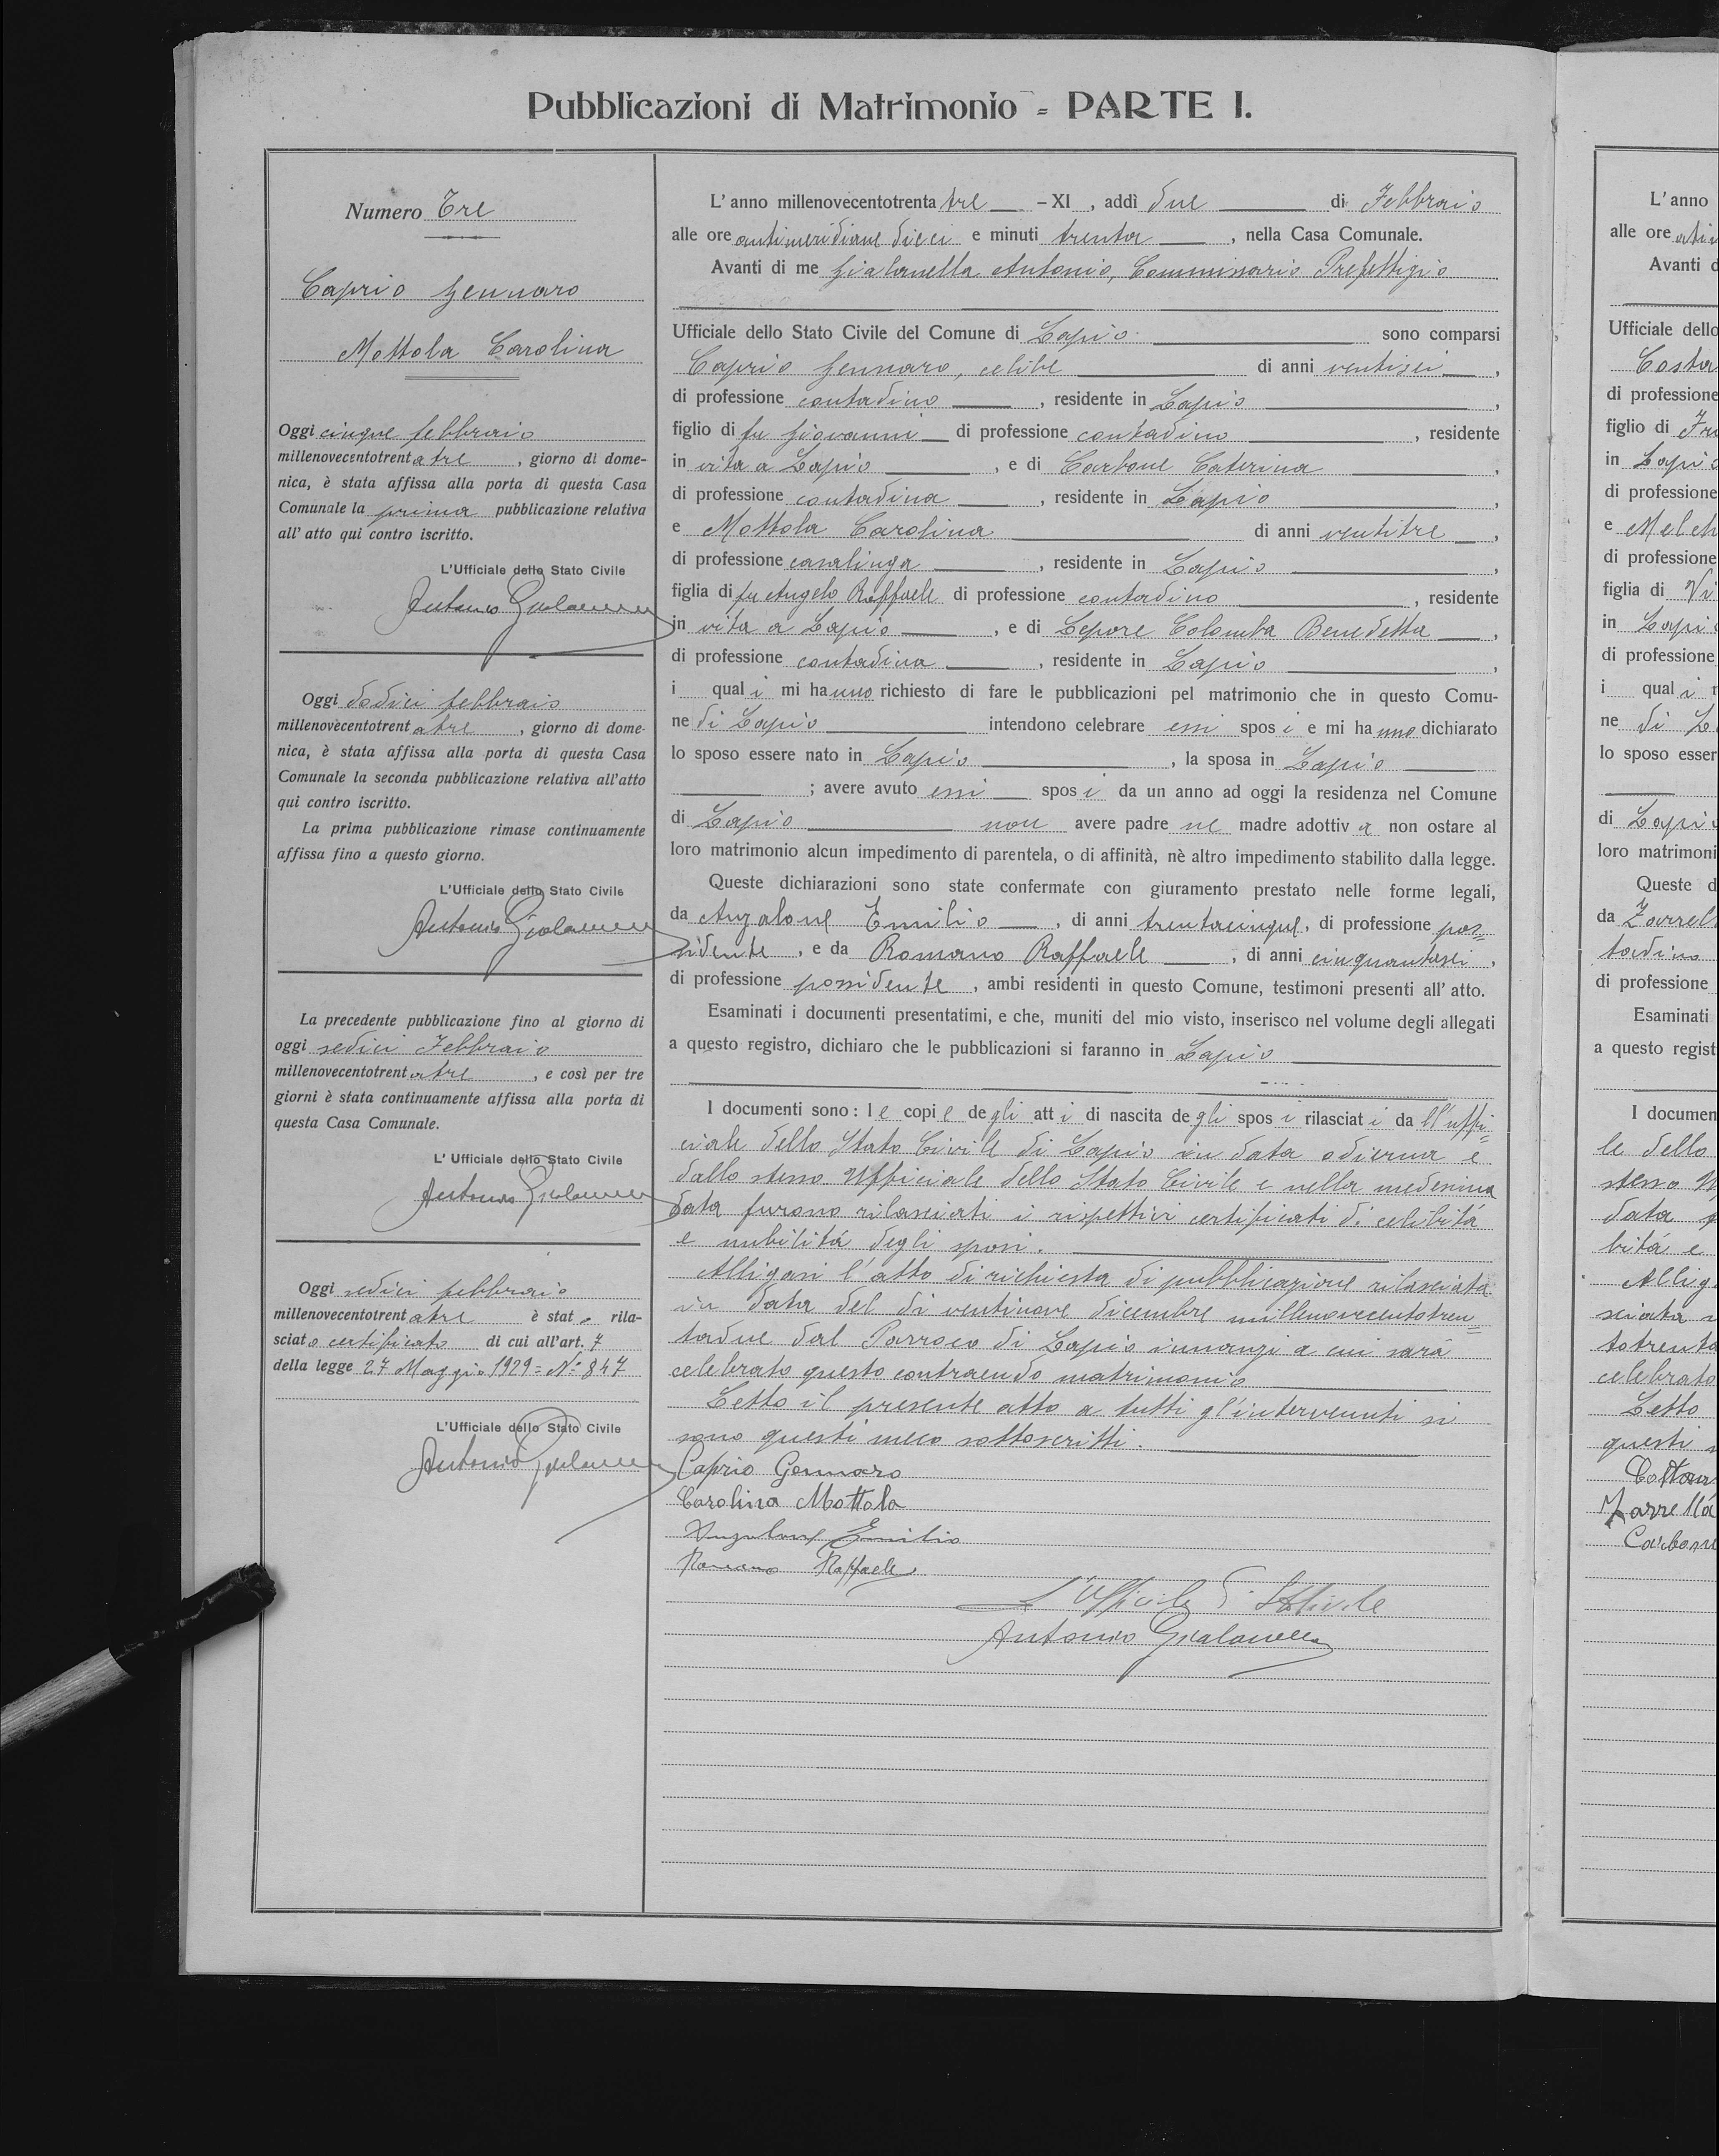 Pubblicazioni di Matrimonio - PARTE I.
Numero Tre
Caprio Gennaro
Mottola Carolina
Oggi cinque febbraio
millenovecentotrentatre, giorno di dome-
nica, è stata affissa alla porta di questa Casa
Comunale la prima pubblicazione relativa
all'atto qui contro iscritto.
L'Ufficiale dello Stato Civile
Antonio Gialanella
Oggi dodici febbraio
millenovecentotrentatre, giorno di dome-
nica, è stata affissa alla porta di questa Casa
Comunale la seconda pubblicazione relativa all'atto
qui contro iscritto.
La prima pubblicazione rimase continuamente
affissa fino a questo giorno.
L'Ufficiale dello Stato Civile
Antonio Gialanella
La precedente pubblicazione fino al giorno di
oggi sedici Febbraio
millenovecentotrentatre, e così per tre
giorni è stata continuamente affissa alla porta di
questa Casa Comunale.
L'Ufficiale dello Stato Civile
Antonio Gialanella
Oggi sedici febbraio
millenovecentotrentatre è stato rila-
sciato certificato di cui all'art. 7
della legge 27 Maggio 1929 = N° 847
L'Ufficiale dello Stato Civile
Antonio Gialanella
L'anno millenovecentotrentatre - XI, addì due di Febbraio
alle ore antimeridiane dieci e minuti trenta, nella Casa Comunale.
Avanti di me Gialanella Antonio, Commissario Prefettizio
Ufficiale dello Stato Civile del Comune di Lapio sono comparsi
Caprio Gennaro, celibe di anni ventisei,
di professione contadino, residente in Lapio,
figlio di fu Giovanni di professione contadino, residente
in vita a Lapio, e di Carbone Caterina,
di professione contadina, residente in Lapio,
e Mottola Carolina di anni ventitre,
di professione casalinga, residente in Lapio,
figlia di fu Angelo Raffaele di professione contadino, residente
in vita a Lapio, e di Lepore Colomba Benedetta,
di professione contadina, residente in Lapio,
i quali mi hanno richiesto di fare le pubblicazioni pel matrimonio che in questo Comu-
ne di Lapio intendono celebrare essi sposi e mi hanno dichiarato
lo sposo essere nato in Lapio, la sposa in Lapio
; avere avuto essi sposi da un anno ad oggi la residenza nel Comune
di Lapio non avere padre ne madre adottiva non ostare al
loro matrimonio alcun impedimento di parentela, o di affinità, nè altro impedimento stabilito dalla legge.
Queste dichiarazioni sono state confermate con giuramento prestato nelle forme legali,
da Anzalone Emilio, di anni trentacinque, di professione pos=
sidente, e da Romano Raffaele, di anni cinquantasei,
di professione possidente, ambi residenti in questo Comune, testimoni presenti all'atto.
Esaminati i documenti presentatimi, e che, muniti del mio visto, inserisco nel volume degli allegati
a questo registro, dichiaro che le pubblicazioni si faranno in Lapio
I documenti sono: le copie degli atti di nascita degli sposi rilasciati dall'uffi=
ciale dello Stato Civile di Lapio in data odierna e
dallo stesso Ufficiale dello Stato Civile e nella medesima
data furono rilasciati i rispettivi certificati di celibità
e nubilità degli sposi.
Alligasi l'atto di richiesta di pubblicazione rilasciata
in data del di ventinove dicembre millenovecentotren=
tadue dal Parroco di Lapio innanzi a cui sarà
celebrato questo contraendo matrimonio
Letto il presente atto a tutti gl'intervenuti si
sono questi meco sottoscritti.
Caprio Gennaro
Carolina Mottola
Anzalone Emilio
Romano Raffaele
L'Ufficiale di St Civile
Antonio Gialanella
L'anno
alle ore
Avanti
Ufficiale dello
di professione
figlio di
in Lapio
di professione
e
di professione
figlia di
in Lapio
di professione
i quali
ne di
lo sposo esser
di Lapio
loro matrimoni
Queste
da
tadino
di professione
Esaminati
a questo regist
I documen
le dello
stesso
data
bità e
sciata
totrenta
celebrato
Letto
questi
Zarrella